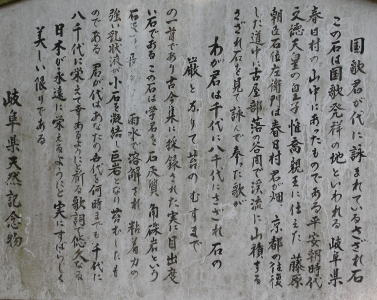 国歌君が代に詠まれているさざれ石
この石は国歌発祥の地といわれる 岐阜県
春日村の山中にあったものである 平安朝時代
文徳天皇の皇子 惟喬親王に仕えた 藤原
朝臣石位左衛門は春日村君が畑 京都の往復
した道中に古屋部落谷周で渓流に山積する
さざれ石を見て詠んで奉った歌が
わが君は千代に八千代にさざれ石の
巌となりて苔のむすまで
の一首であり古今集に採録された実に目出度
い石である この石は学名を石灰質角礫岩という
雨水で溶解され 粘着力の
強い乳状液が小石を凝結して巨岩となり苔むしたも
のである 君が代はあなたの齢が何時までも千代に
八千代に栄えて幸あるように祈る歌詞で悠久なる
日本が永遠に栄えるようにと実にすばらしく
美しい限りである
岐阜県天然記念物